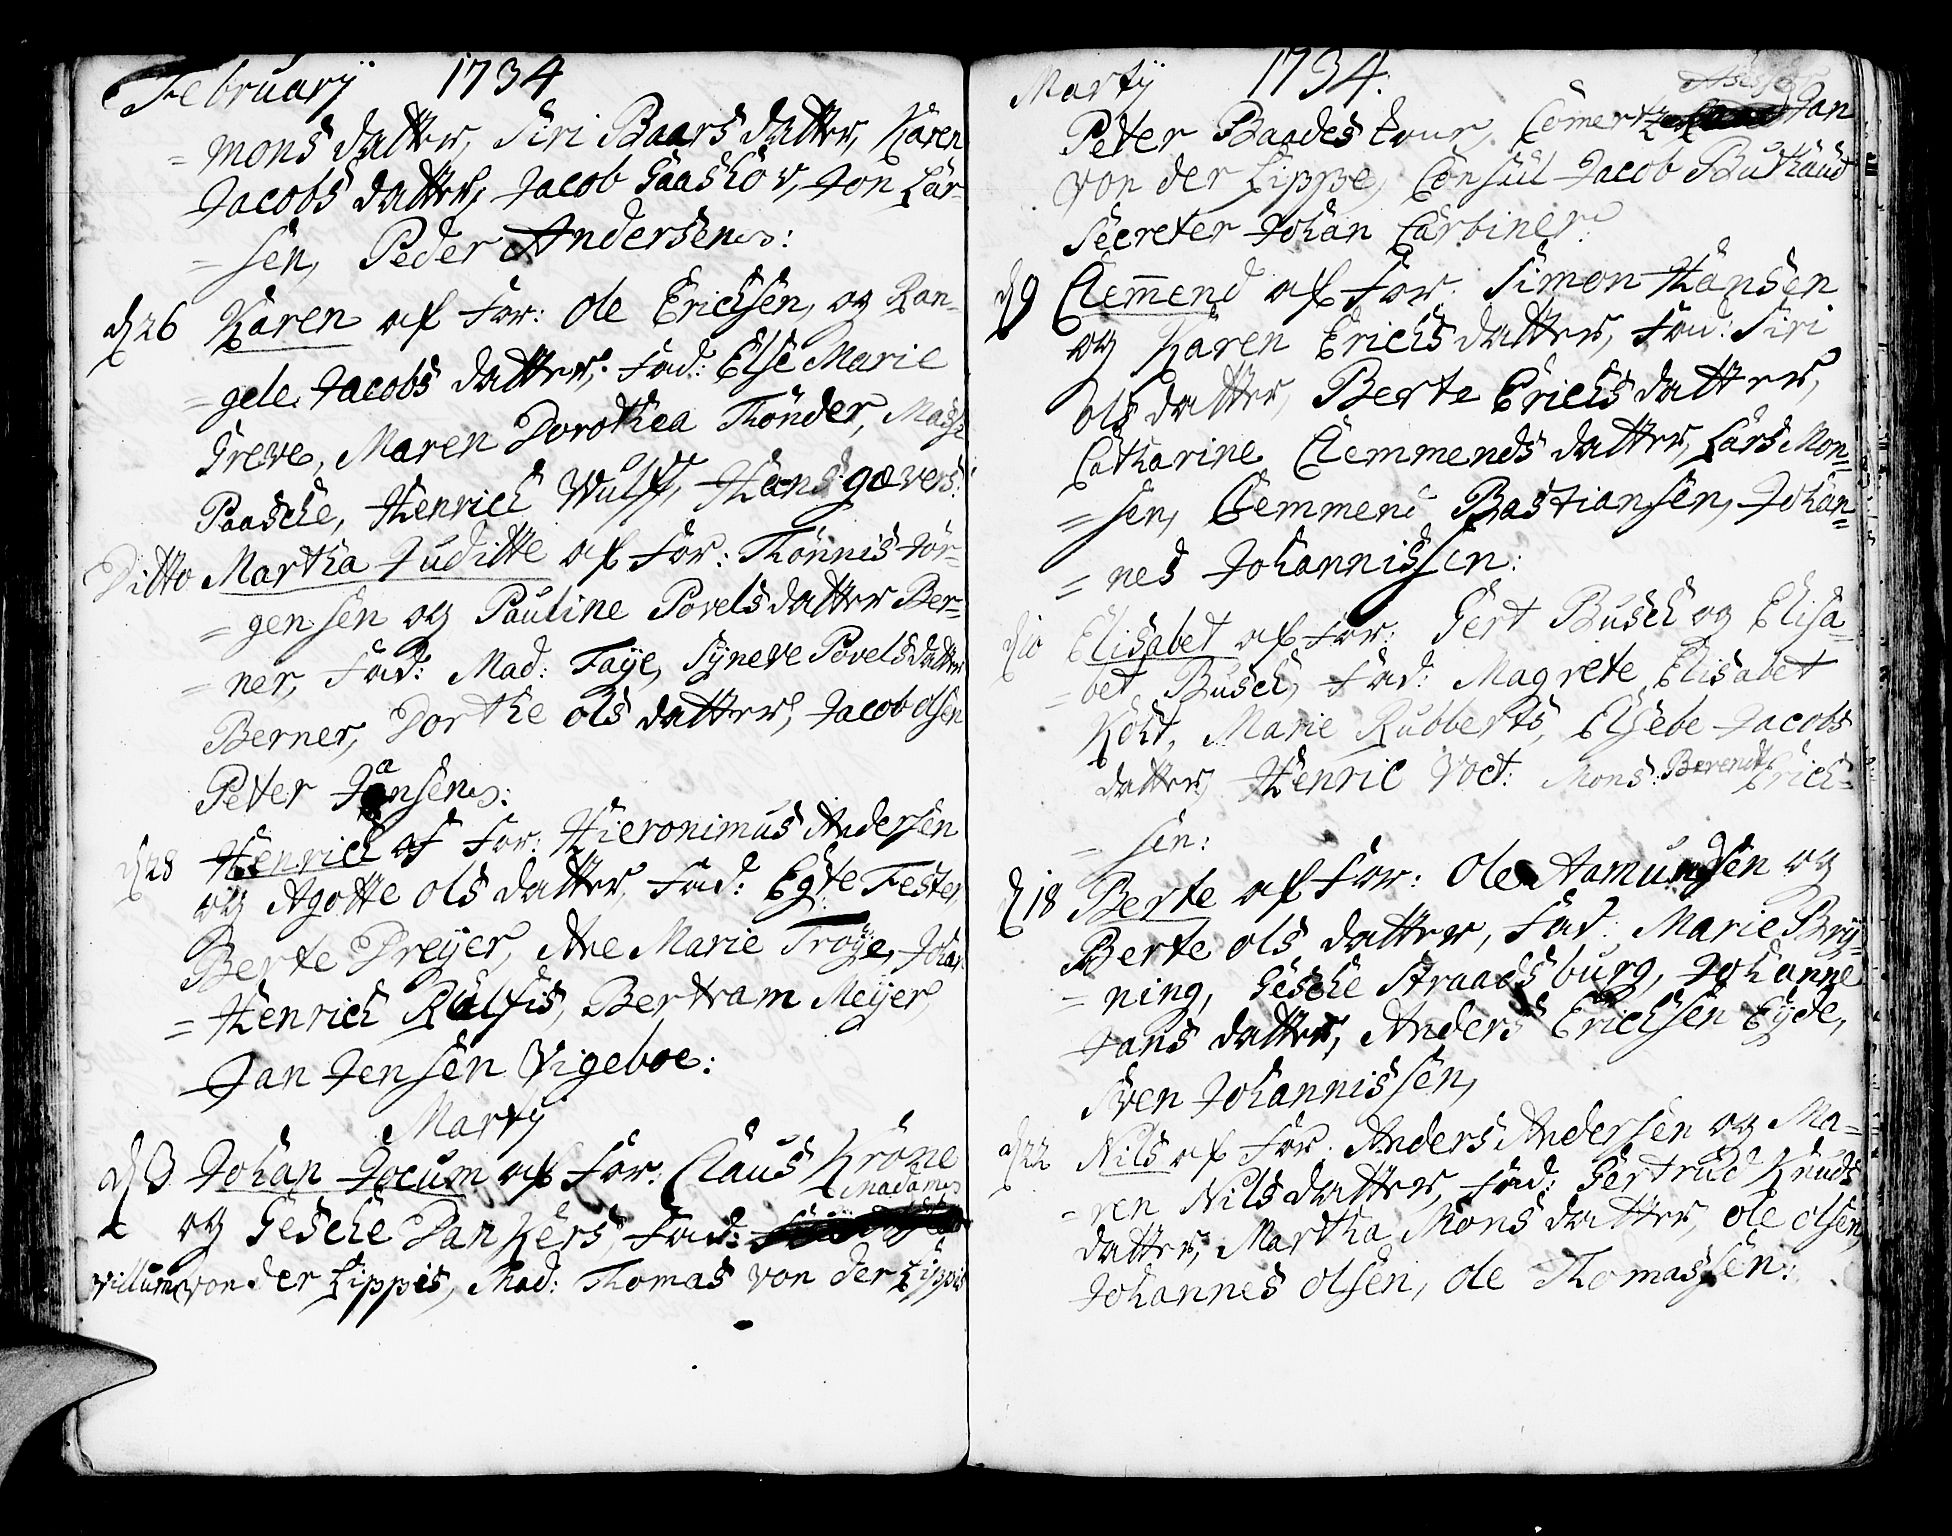 February 1734
= mons datter, Siri Baars datter, Karen
Jacobs datter, Jacob Gaaskov, Jon Lar-
= sen, Peder Andersen:
d 26 Karen af For: Ole Erichsen, og Ran-
= gele Jacobs datter, Fad: Else Marie
Greve, Maren Dorothea Thönder,
Paasche, Henrich Wulff, Hans gævers:
Ditto Martha Juditte af For: Thönnis Jör-
= gensen og Pauline Povels datter Ber-
= ner, Fad: Mad: Faÿe, Sÿneve Povels datter
Berner, Dorthe ols datter, Jacob olsen
Peter Jansen:
d 28 Henrich af For: Hieronimus Andersen
og Agotte ols datter, Fad: Egte Fester,
Berte Dreÿer, Ane Marie Troÿe, Johan
= Henrich Rulfis, Bertram Meÿer,
Jan Jensen Vigeboe:
Martÿ
d 3 Johan Jocum af For: Claus Kröne
Madame
og Gesche Dankers, Fad:
Villum von der Lippis, Mad: Thomas von der Lippis
Martÿ 1734.
Assessor
Peter Baades Enur, Comert Jan
von der Lippe, Consul Jacob Buthaud
Secreter Johan Carbiner:
d 9 Clem̄end af For: Simon Hansen
og Karen Erichs datter, Fad: Siri
ols datter, Berte Erichs datter,
Catharine Clemmends datter, Lars Mon=
= sen, Clemmend Bastiansen, Johan=
= nes Johannissen:
d 10 Elisabet af For: Gert Busch og Elisa-
= bet Busch, Fad: Magrete Elisabet
Koht, Marie Rubberts, Elsebe Jacobs
datter, Henric Voct: Mons: Berendt Erich=
= sen:
d 18 Berte af For: Ole Aamundsen og
Berte ols datter, Fad: Marie Brÿ-
= ning, Gesche Straadsburg, Johanne
Jans datter, Anders Erichsen Eÿde,
Sven Johannissen,
d 22 Nils af For: Anders Andersen og Ma-
= ren Nils datter, Fad: Gertrud Knuds
datter, Martha Mons datter, ole olsen,
Johannes olsen, ole Thomassen: